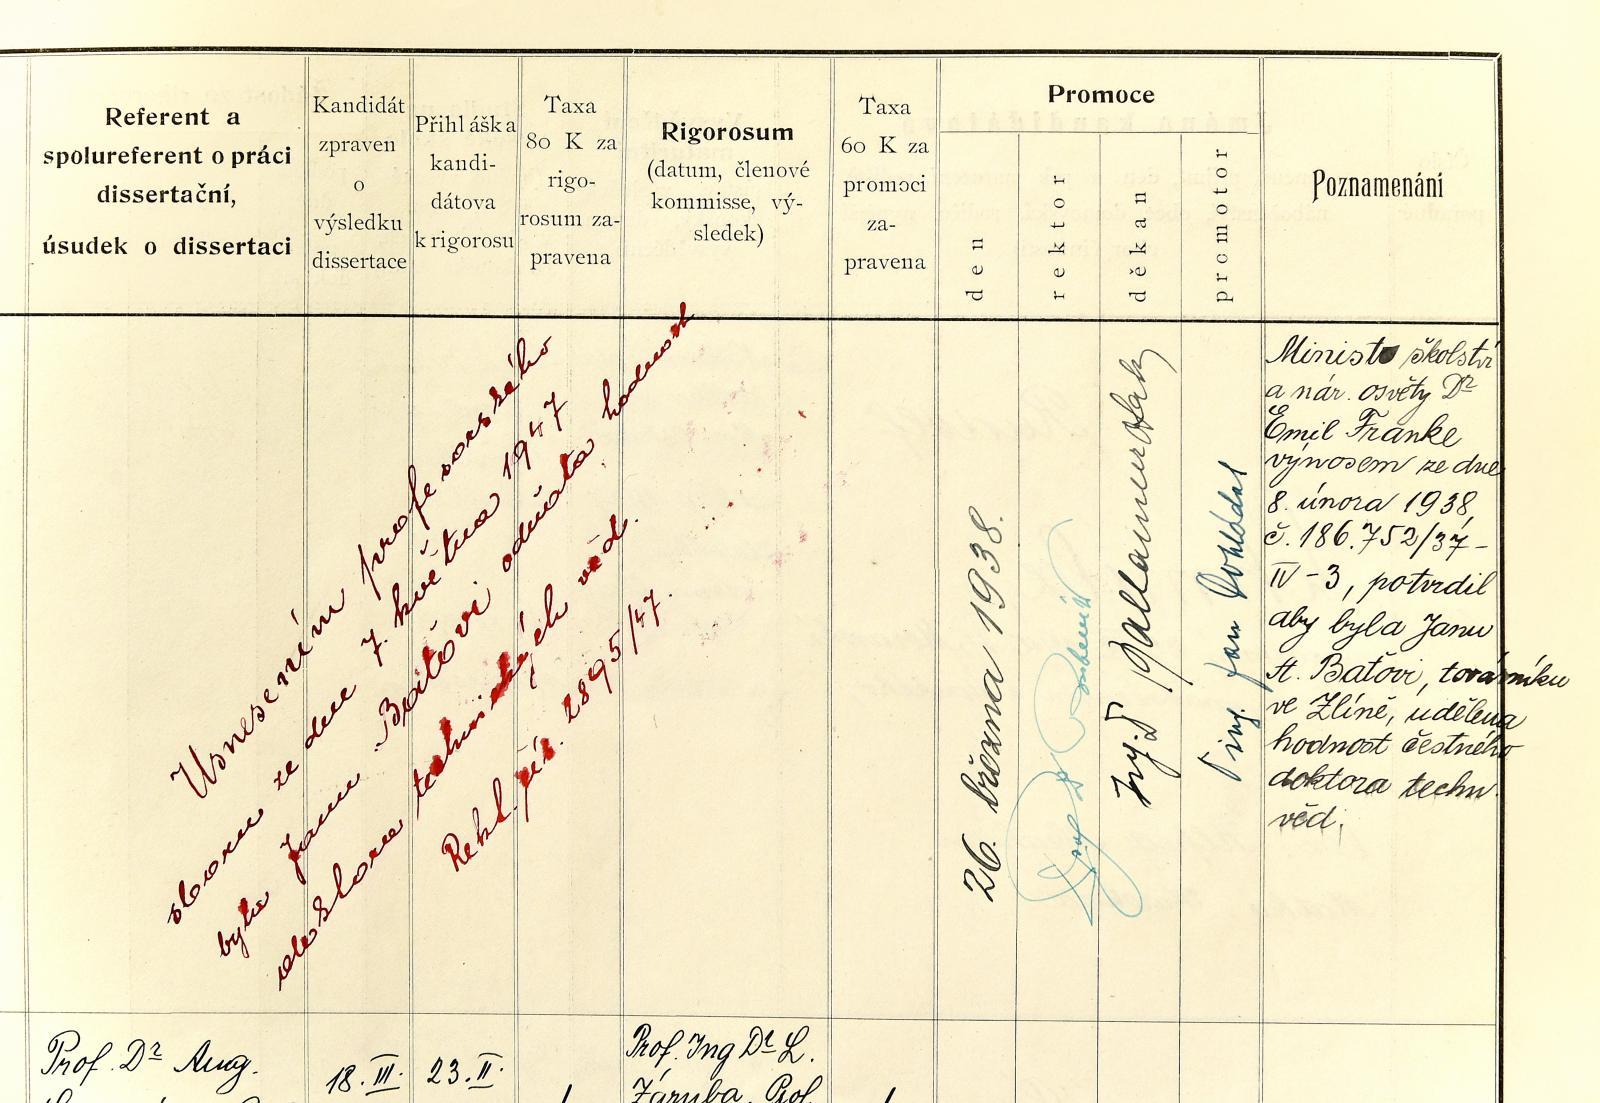 Referent a
spolureferent o práci
dissertační,
úsudek o dissertaci
Kandidát
zpraven
o
výsledku
dissertace
Přihláška
kandi-
dátova
k rigorosu
Taxa
80 K za
rigo-
rosum za-
pravena
Rigorosum
(datum, členové
kommisse, vý-
sledek)
Taxa
60 K za
promoci
za-
pravena
Promoce
den
rektor
děkan
promotor
Poznamenání
Usnesením profesorského
sboru ze dne 7. května 1947
byla Janu Baťovi odňata hodnost
doktora technických věd.
Rekt. 2895/47.
26. března 1938.
Ing. Dr
Ing. Jan
Minist školství
a nár. osvěty Dr
Emil Franke
výnosem ze dne
8. února 1938
č. 186.752/37-
IV-3, potvrdil
aby byla Janu
A. Baťovi, továrníku
ve Zlíně, udělena
hodnost čestného
doktora techn.
věd.
Prof. Dr Aug.
18. III.
23. II.
Prof. Ing Dr L.
Záruba, Prof.